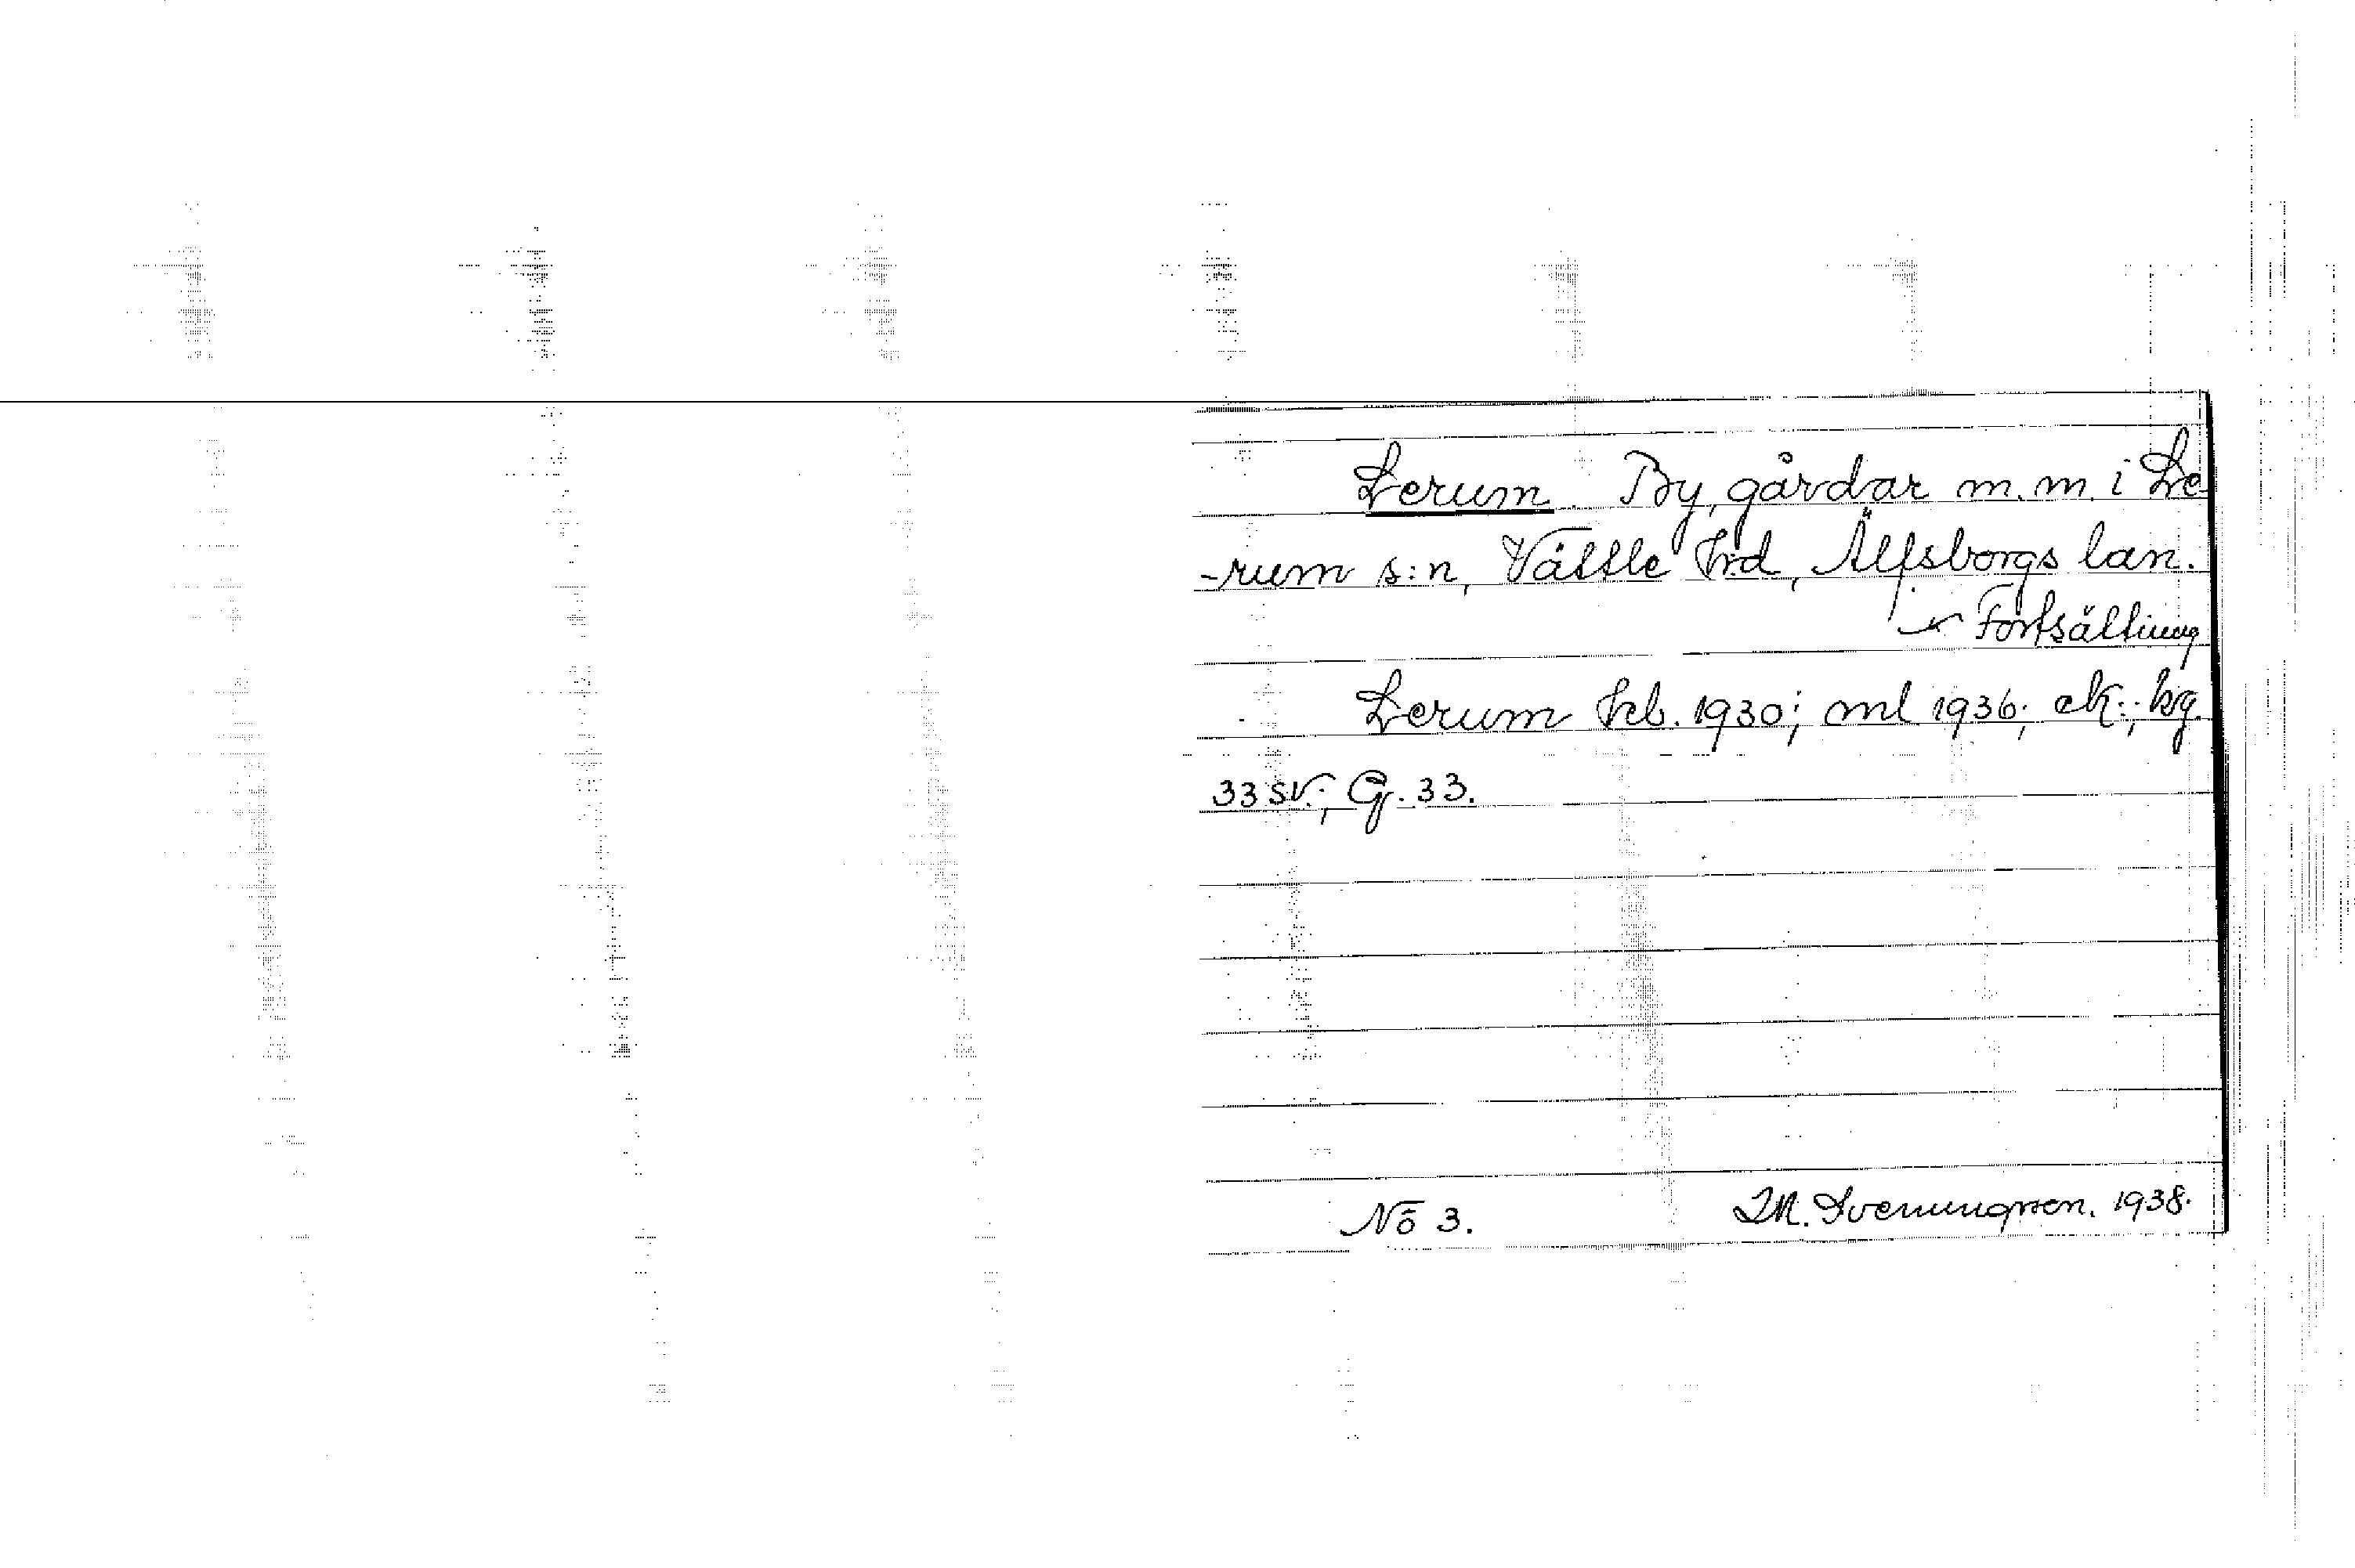 Lerum. By, gårdar m.m. i Le
-rum s:n, Vättle hd, Älfsborgs län.
Fortsättning
Lerum kb. 1930; ml 1936; ek.; bg.
33 sv.; G. 33.
No 3. 1938.